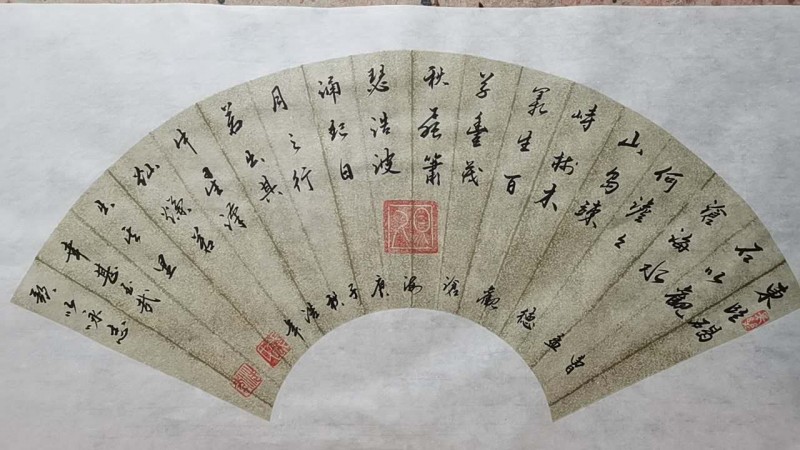 東臨碣
石以觀
滄海水
何澹澹
山島竦
峙樹木
叢生百
草豐茂
秋風蕭
瑟浩波
涌起日
月之行
若出其
中星漢
灿爛若
出其里
幸甚至哉
歌以詠志
曹孟德觀滄海庚子秋